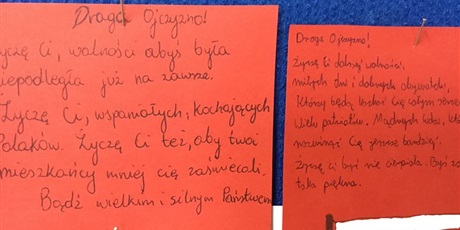 Droga Ojczyzno!
życzę Ci, wolności abyś była
niepodległa już na zawsze.
Życzę Ci, wspaniałych, kochających
Polaków. Życzę Ci też, aby twoi
mieszkańcy mniej cię zaśmiecali.
Bądź wielkim i silnym Państwem
Droga Ojczyzno!
Życzę Ci dalszej wolności,
miłych dni i dobrych obywateli,
którzy będą kochać Cię całym sercem
Wielu patriotów. Mądrych ludzi, którzy
Cię jeszcze bardziej.
Życzę ci byś nie cierpiała. Byś
taka piękna.